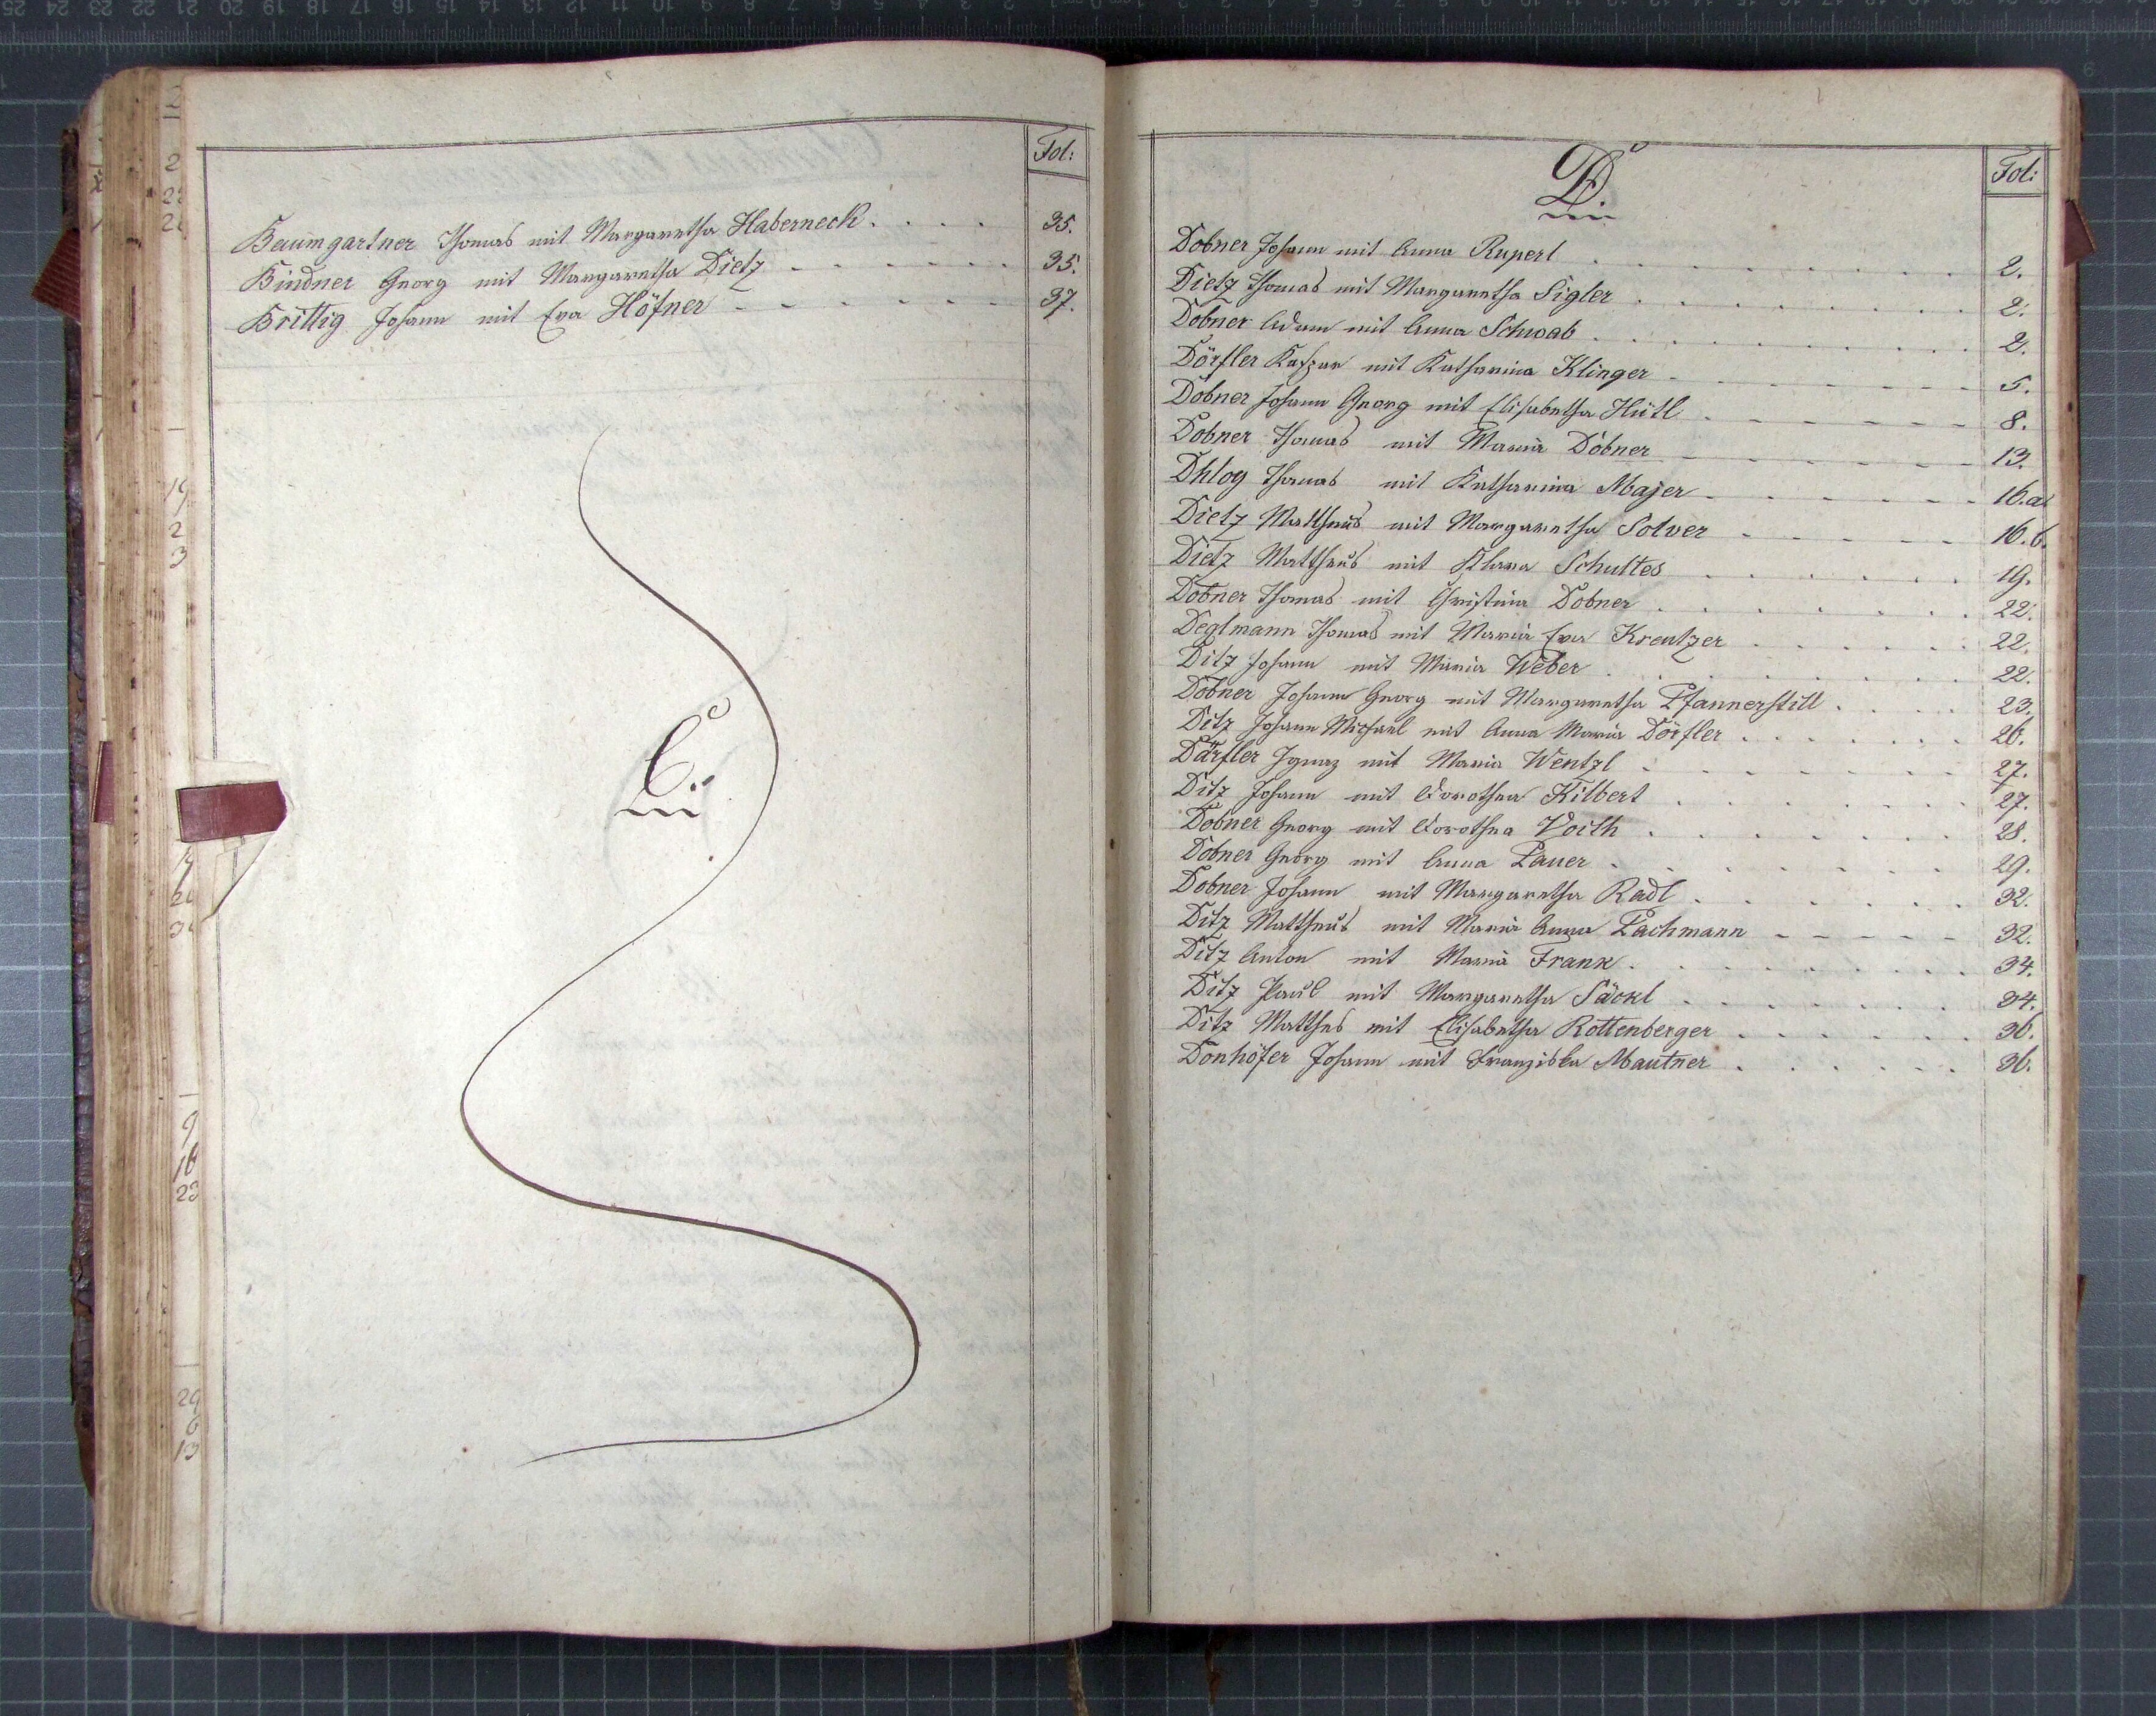 Fol:
Baumgartner Thomas mit Margaretha Haberneck . . . . 35.
Bindner Georg mit Margaretha Dietz - - - - - - 35.
Brittig Johann mit Eva Höfner - - - - - - - 37.
C.
D.
Fol:
Dobner Johann mit Anna Rupert . . . . . . . . . 2.
Dietz Thomas mit Margaretha Sigler . . . . . . . . 2.
Dobner Adam mit Anna Schwab . . . . . . . . . 2.
Dörfler Kaspar mit Katharina Klinger - - - - - - - 5.
Dobner Johann Georg mit Elisabetha Hütl - - - - - - 8.
Dobner Thomas mit Maria Dobner - - - - - - - 13.
Dhlog Thomas mit Katharina Majer - - - - - - - 16.a.
Dietz Mattheus mit Margaretha Solver - - - - - 16.b.
Dietz Mattheus mit Klara Schultes . . . . . . . 19.
Dobner Thomas mit Christina Dobner . . . . . . . 22.
Deglmann Thomas mit Maria Eva Kreutzer . . . . . . 22.
Ditz Johann mit Maria Weber . . . . . . . . 22.
Dobner Johann Georg mit Margaretha Pfannerstill . . . . 23.
Ditz Johann Michael mit Anna Maria Dörfler . . . . . . 26.
Därfler Ignaz mit Maria Wentzl . . . . . . . . 27.
Ditz Johann mit Dorothea Kilbert . . . . . . . 27.
Dobner Georg mit Dorothea Voith . . . . . . . 28.
Dobner Georg mit Anna Pauer . . . . . . . . 29.
Dobner Johann mit Margaretha Radl . . . . . . . 32.
Ditz Mattheus mit Maria Anna Pachmann - - - - - 32.
Ditz Anton mit Maria Frank . . . . . . . . . 34.
Ditz Paul mit Margaretha Säckl . . . . . . . 34.
Ditz Matthes mit Elisabetha Rottenberger . . . . . . 36.
Donhöfer Johann mit Franziska Mautner . . . . . . 36.